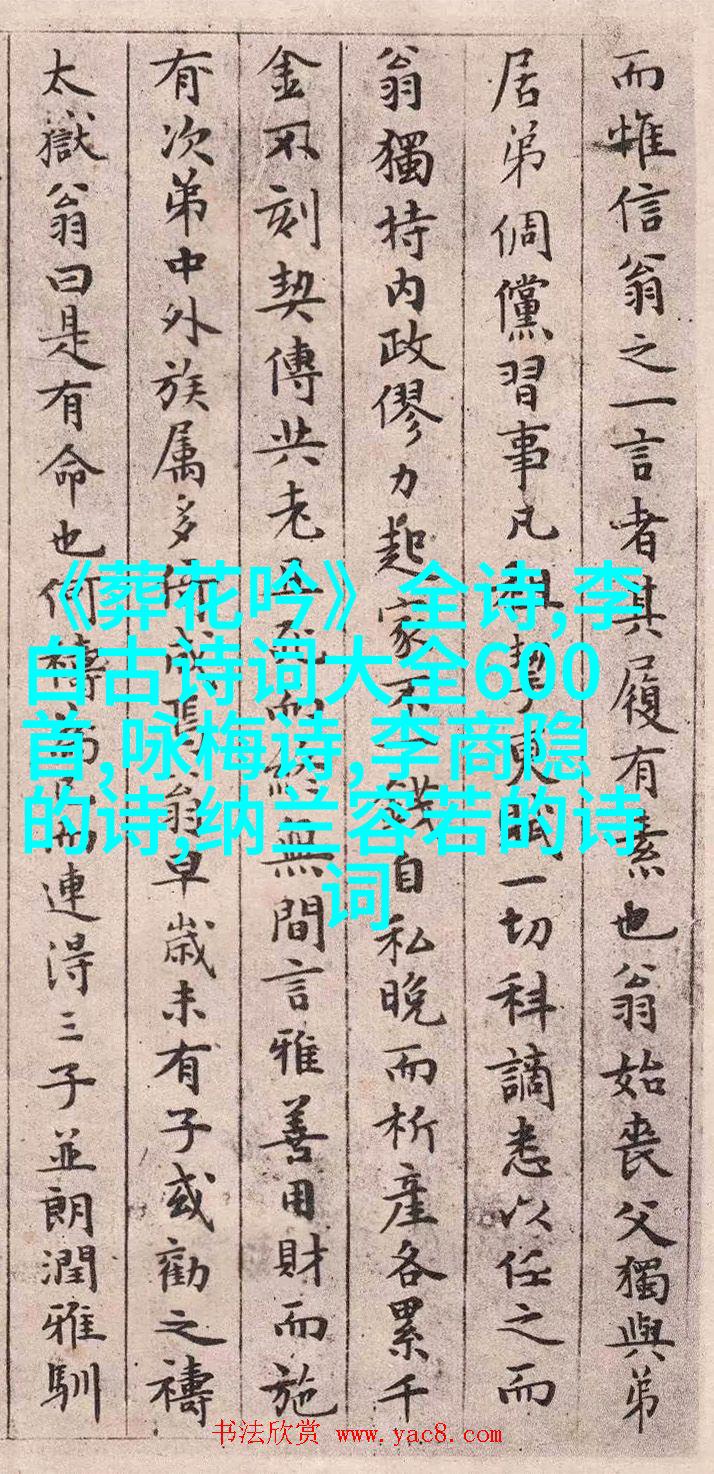 而惟信翁之一言者其履有素也翁始喪父獨與弟
居弟倜儻習事凡科一切科謫悉以任之而
翁獨持内政僇力起家不一錢自私晚而析産各累千
金不刻契傳共老且死而終無間言雅善用財而施
有次弟中外族属多翁早歳未有子或勸之禱
太嶽翁曰是有命也何禱為居而連得三子並朗潤雅馴
《葬花吟》全诗,李
白古诗词大全600
首,咏梅诗,李商隐
的诗,纳兰容若的诗
词
书法欣赏 www.yac8.com